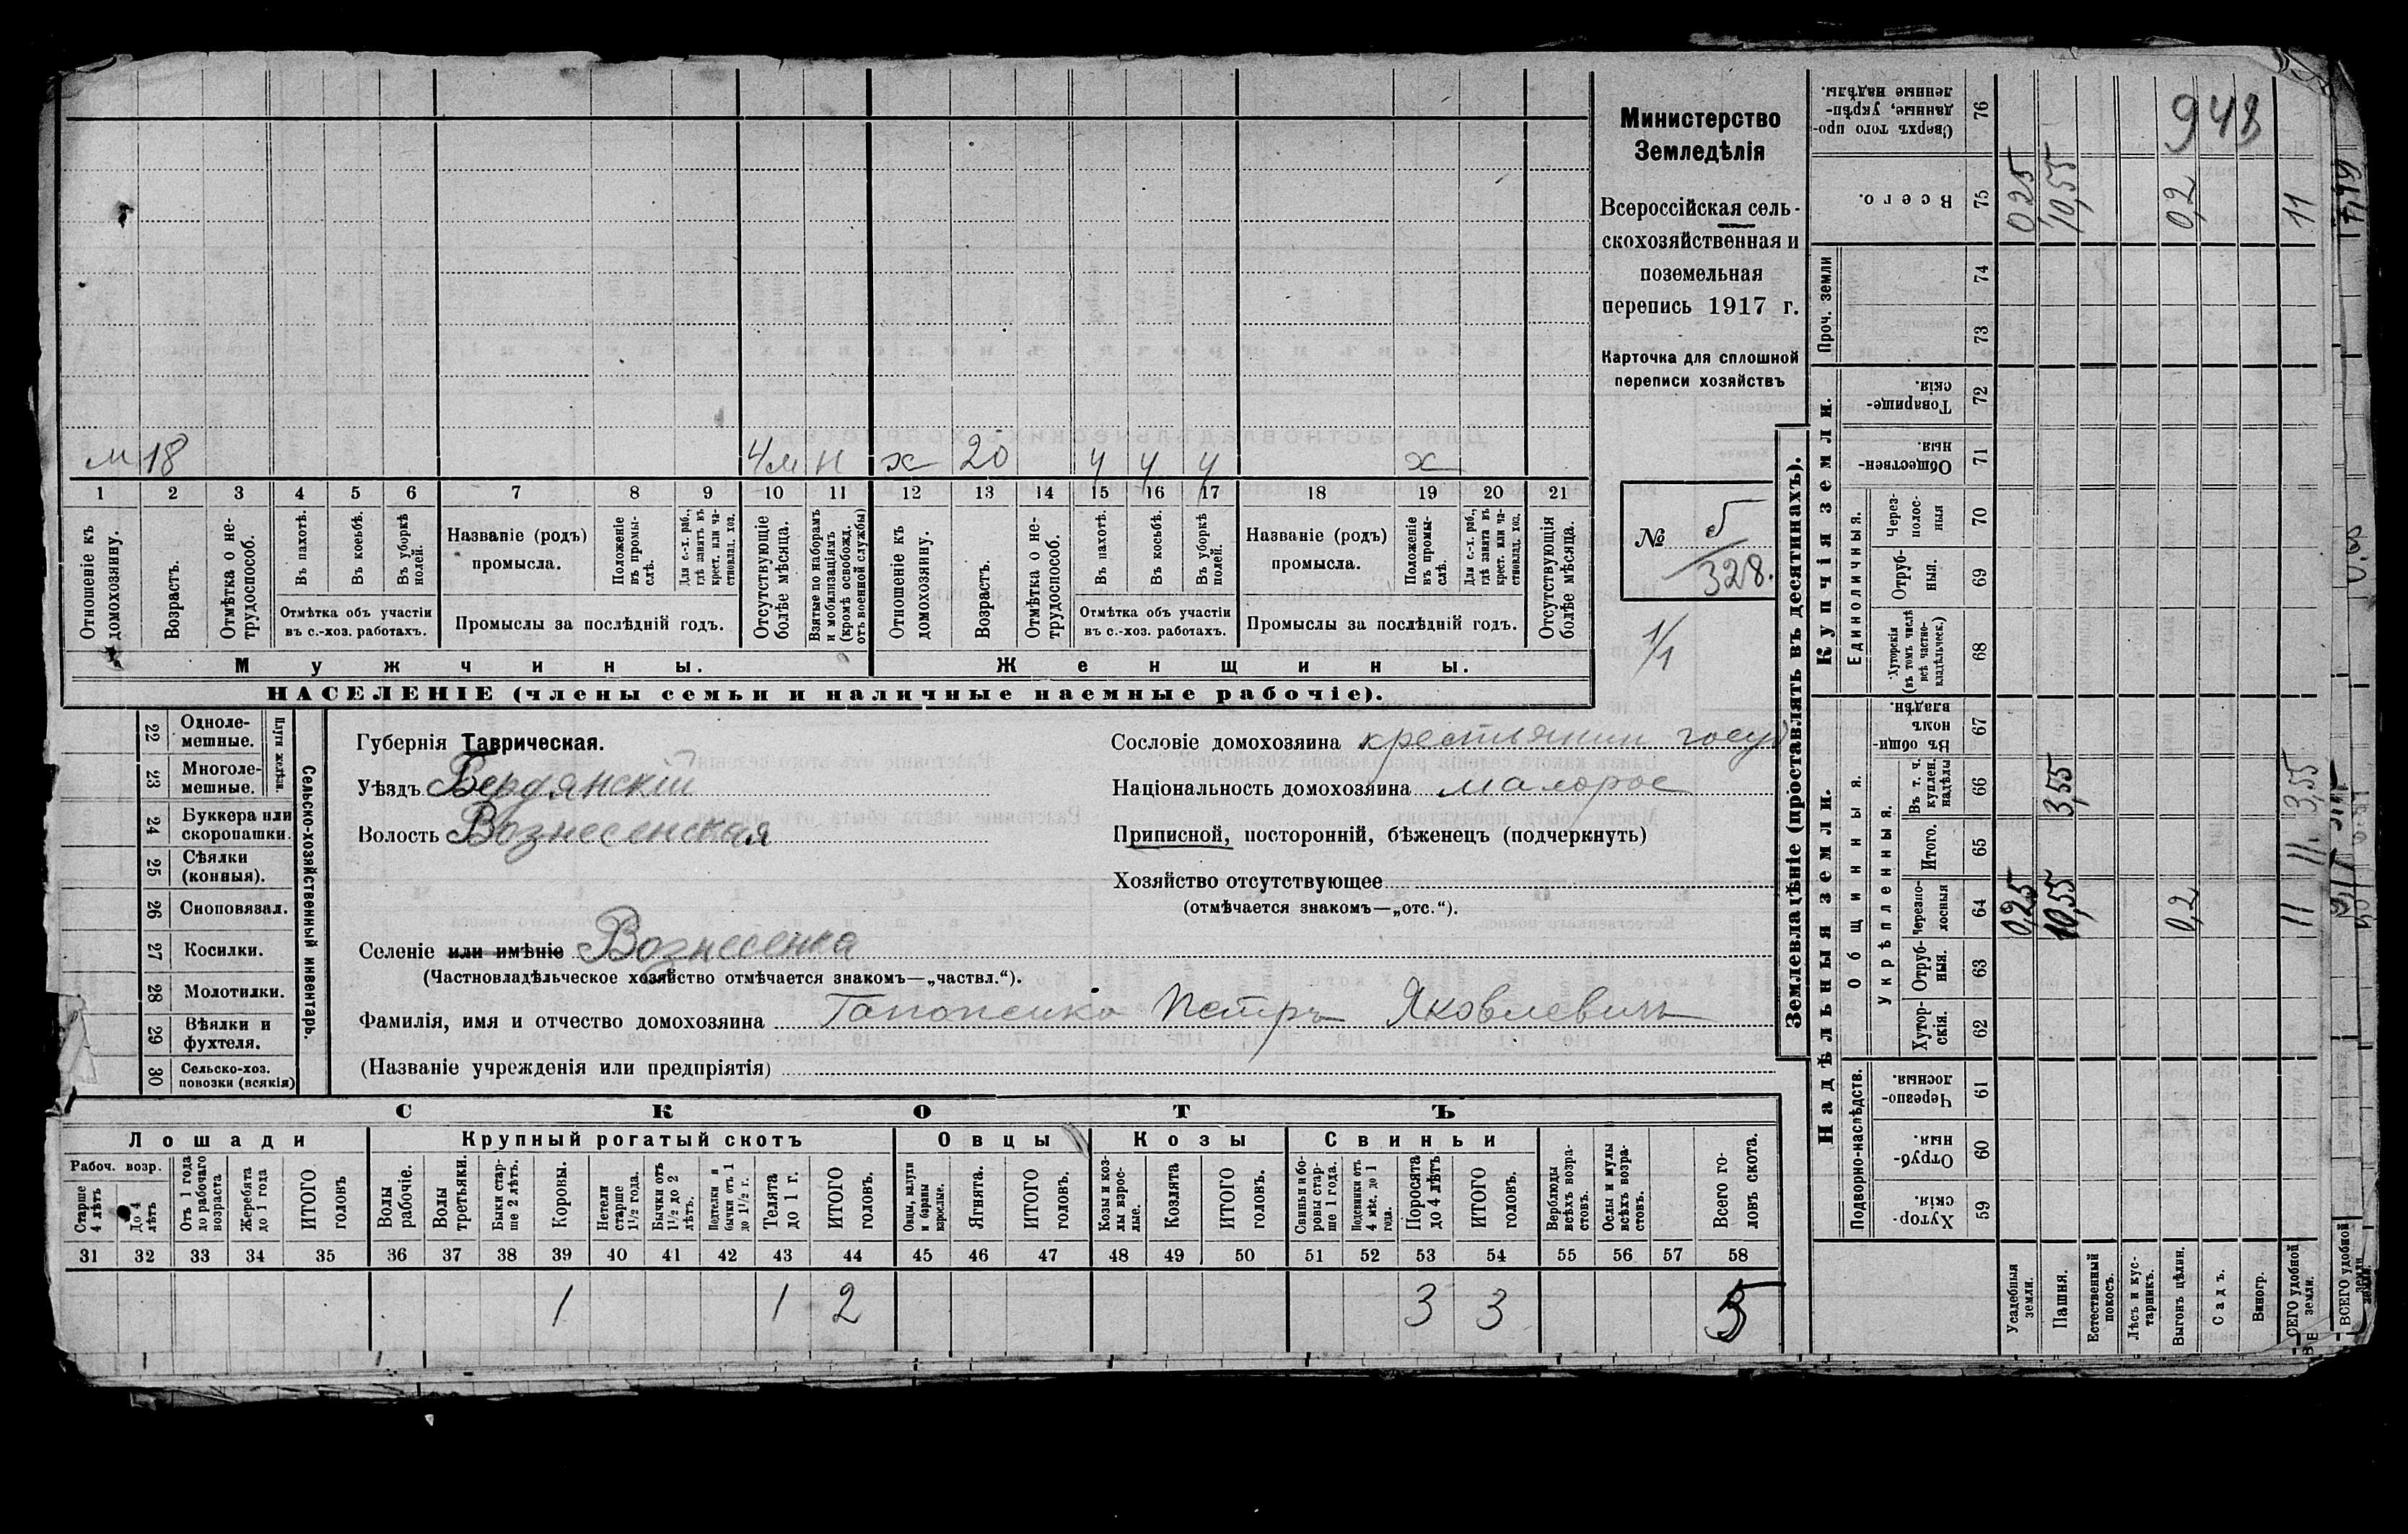 м 18 4м н ж 20 ч ч ч х
1 2 3 4 5 6 7 8 9 10 11 12 13 14 15 16 17 18 19 20 21
Отношеніе къ домохозяину.
Возрастъ.
Отмѣтка о нетрудоспособ.
Въ пахотѣ.
Въ косьбѣ.
Въ уборкѣ полей.
Отмѣтка объ участіи въ с.-хоз. работахъ.
Названіе (родъ) промысла.
Положеніе въ промыслѣ.
Для с.-х. раб., гдѣ занятъ въ крест. или частновлад. хоз.
Промыслы за послѣдній годъ.
Отсутствующіе болѣе мѣсяца.
Взятые по наборамъ и мобилизаціямъ (кромѣ освобожд. отъ военной службы)
Отношеніе къ домохозяину.
Возрастъ.
Отмѣтка о нетрудоспособ.
Въ пахотѣ.
Въ косьбѣ.
Въ уборкѣ полей.
Отмѣтка объ участіи въ с.-хоз. работахъ.
Названіе (родъ) промысла.
Положеніе въ промыслѣ.
Для с.-х. раб., гдѣ занята въ крест. или частновлад. хоз.
Промыслы за послѣдній годъ.
Отсутствующія болѣе мѣсяца.
Мужчины. Женщины.
НАСЕЛЕНІЕ (члены семьи и наличные наемные рабочіе).
Министерство
Земледѣлія
Всероссійская сель-
скохозяйственная и
поземельная
перепись 1917 г.
Карточка для сплошной
переписи хозяйствъ
№ 5
328.
1/1
Сельско-хозяйственный инвентарь.
Плуги желѣзн.
22 Одноле-
мешные.
23 Многоле-
мешные.
24 Буккера или
скоропашки.
25 Сѣялки
(конныя).
26 Сноповязал.
27 Косилки.
28 Молотилки.
29 Вѣялки и
фухтеля.
30 Сельско-хоз.
повозки (всякія)
Губернія Таврическая.
Уѣздъ Бердянскій
Волость Вознесенская
Селеніе или имѣніе Вознесенка
(Частновладѣльческое хозяйство отмѣчается знакомъ—„частвл.“).
Фамилія, имя и отчество домохозяина Гапоненко Петръ Яковлевичъ
(Названіе учрежденія или предпріятія)
Сословіе домохозяина крестьянин госуд
Національность домохозяина малорос
Приписной, посторонній, бѣженецъ (подчеркнуть)
Хозяйство отсутствующее
(отмѣчается знакомъ—„отс.“).
СКОТЪ
Лошади Крупный рогатый скотъ Овцы Козы Свиньи
Рабоч. возр.
Старше 4 лѣтъ
До 4 лѣтъ
Отъ 1 года до рабочаго возраста
Жеребята до 1 года
ИТОГО головъ
Волы рабочіе.
Волы третьяки.
Быки старше 2 лѣтъ.
Коровы.
Нетели старше 1 1/2 года.
Бычки отъ 1 1/2 до 2 лѣтъ.
Подтелки и бычки отъ 1 до 1 1/2 г.
Телята до 1 г.
ИТОГО головъ.
Овцы, валухи и бараны взрослые.
Ягнята.
ИТОГО головъ.
Козы и козлы взрослые.
Козлята
ИТОГО головъ.
Свиньи и боровы старше 1 года.
Подсвинки отъ 4 мѣс. до 1 года.
Поросята до 4 лѣтъ
ИТОГО головъ.
Верблюды всѣхъ возрастовъ.
Ослы и мулы всѣхъ возрастовъ.
Всего головъ скота.
31 32 33 34 35 36 37 38 39 40 41 42 43 44 45 46 47 48 49 50 51 52 53 54 55 56 57 58
1 1 2 3 3 5
Землевладѣніе (проставлять въ десятинахъ).
Купчія земли.
Надѣльныя земли.
Проч. земли
Единоличныя.
Общинныя.
Укрѣпленныя.
Подворно-наслѣдств.
76 Сверхъ того проданные, укрѣпленные надѣлы.
75 Всего.
74
73
72 Товарищескія.
71 Общественныя.
70 Черезполосныя
69 Отрубныя.
68 Хуторскія (въ томъ числѣ всѣ частновладѣльческ.)
67 Въ общинномъ владѣн.
66 Въ т. ч. куплен. надѣлы
65 Итого.
64 Черезполосныя
63 Отрубныя.
62 Хуторскія.
61 Черезполосныя.
60 Отрубныя.
59 Хуторскія.
948
025 10,55 0,2 11
3,55 3,55
0,25 10,55 0,2 11
Усадебныя земли.
Пашня.
Естественный покосъ.
Лѣсъ и кустарникъ.
Выгонъ цѣлин.
Садъ.
Виногр.
ВСЕГО удобной земли.